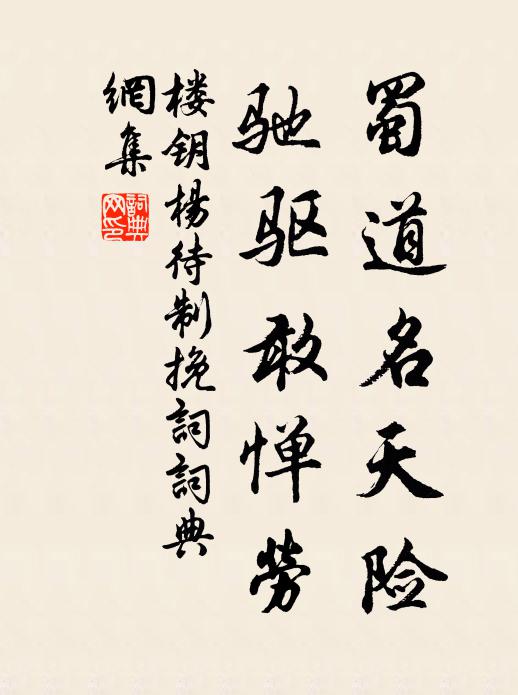 蜀道名天险
驰驱敢惮劳
楼钥杨待制挽詞詞典
網集
詞典网印